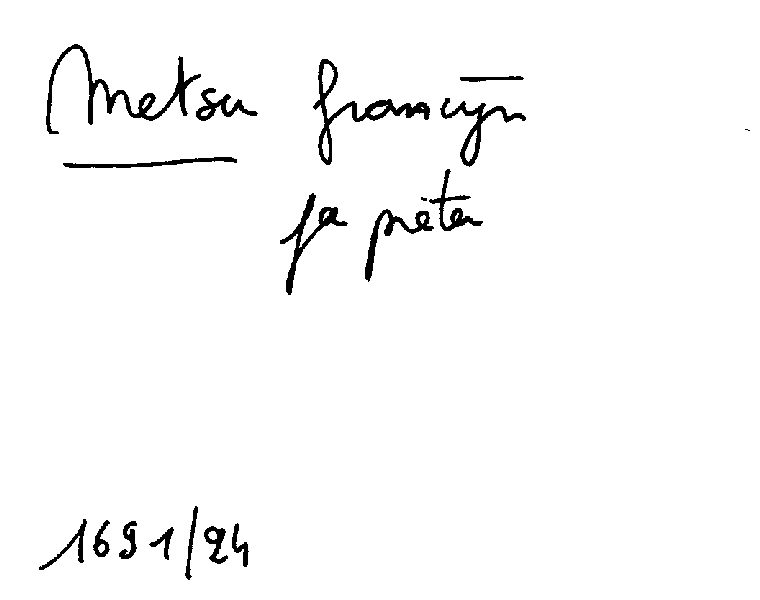 Metsu francijn
fa pieter
1691/24